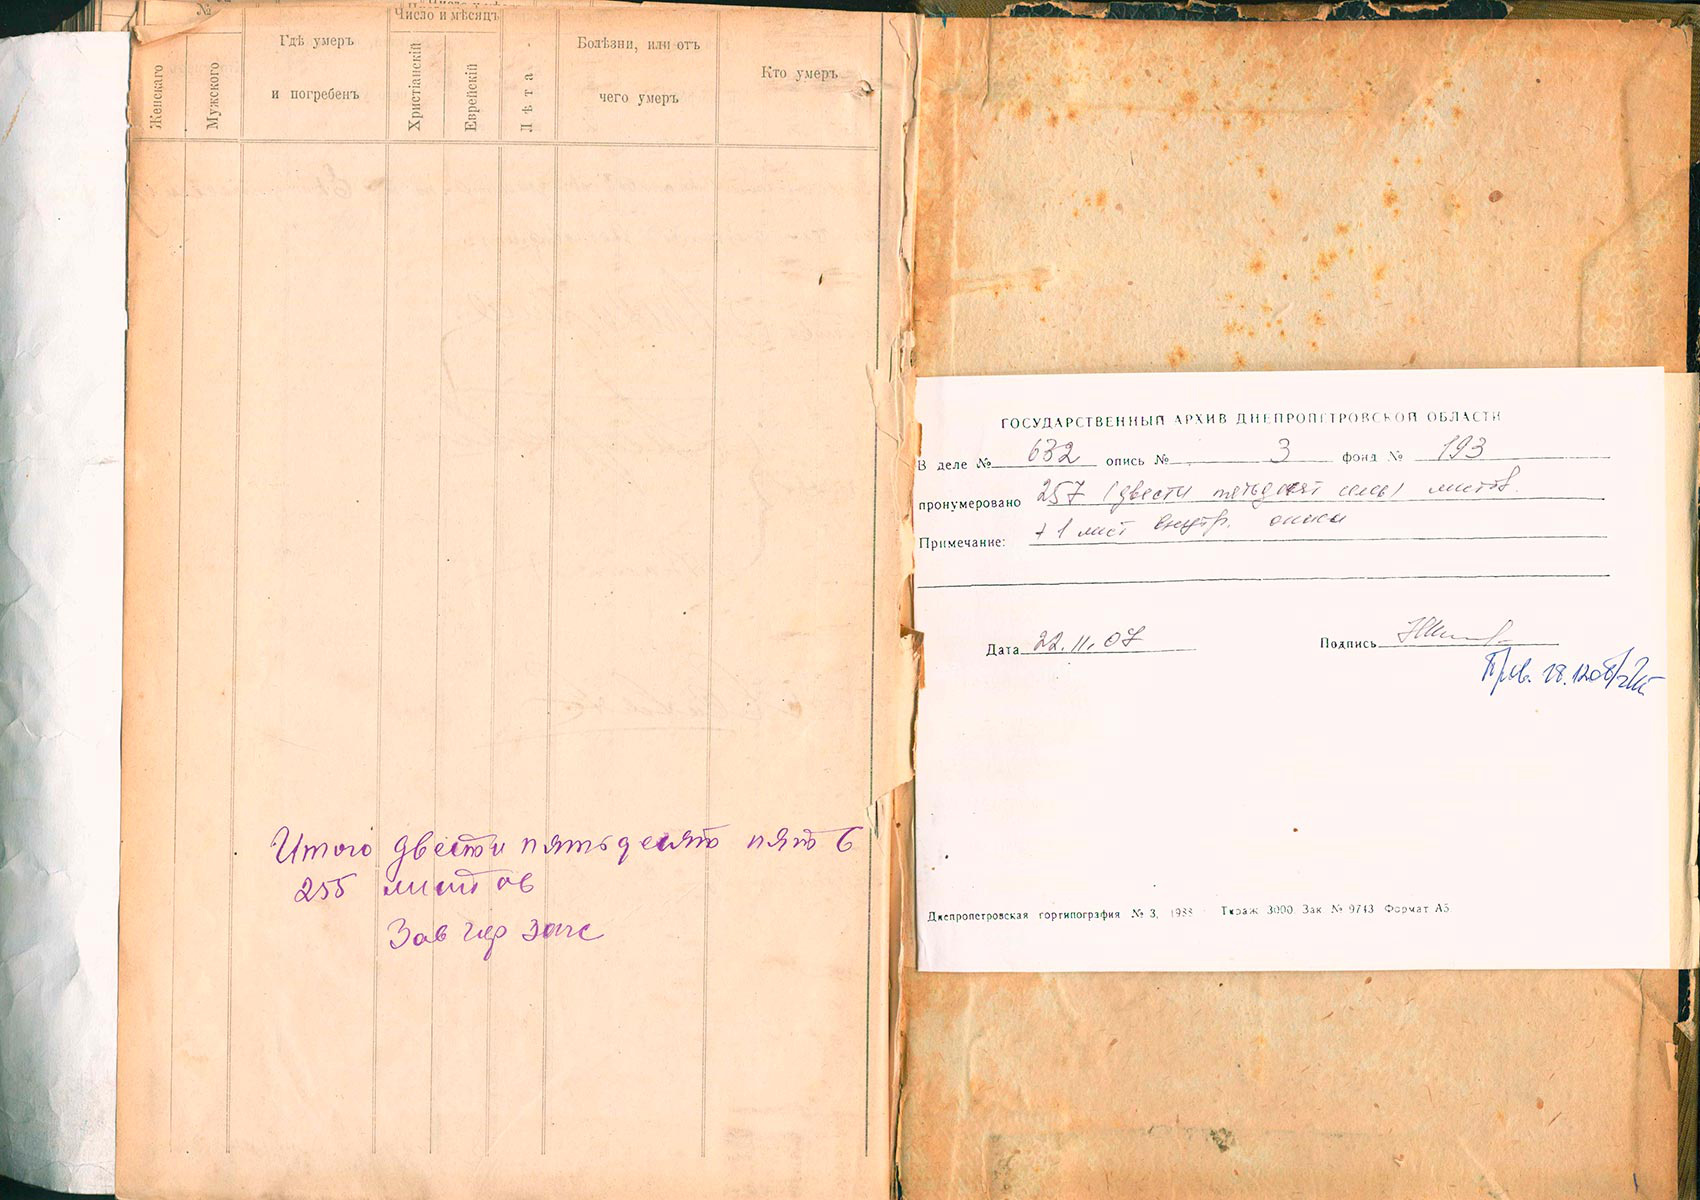 №
Число и мѣсяцъ
Женскаго
Мужского
Гдѣ умеръ
и погребенъ
Христіанскій
Еврейскій
Лѣта
Болѣзни, или отъ
чего умеръ
Кто умеръ
Итого двести пятьдесят пять
255 листов
Зав
ГОСУДАРСТВЕННЫЙ АРХИВ ДНЕПРОПЕТРОВСКОЙ ОБЛАСТИ
В деле № 632 опись № 3 фонд № 193
пронумеровано 257 (двести пятьдесят семь) листов.
Примечание: + 1 лист внутр. описи
Дата 22.11.07
Подпись
Днепропетровская гортипография № 3, 1988 Тираж 3000 Зак № 9743 Формат А5